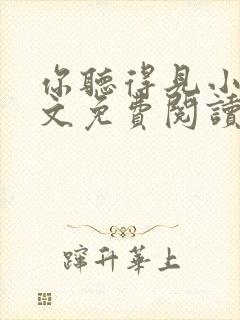 你聽得見小
文免費閱讀
蹿升華上